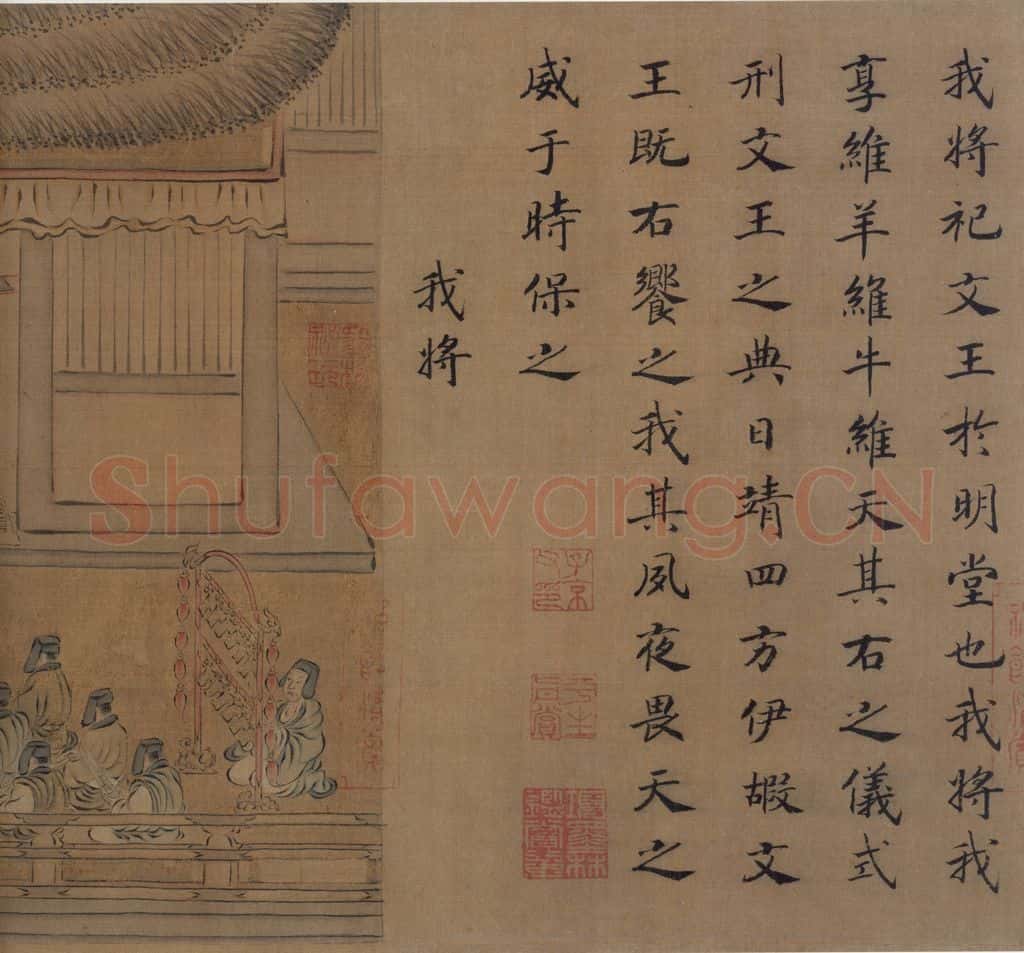 我將祀文王於明堂也我將我
享維羊維牛維天其右之儀式
刑文王之典日靖四方伊嘏文
王既右饗之我其夙夜畏天之
威于時保之
我將
子京父印
項墨林鑑賞章
Shufawang.CN